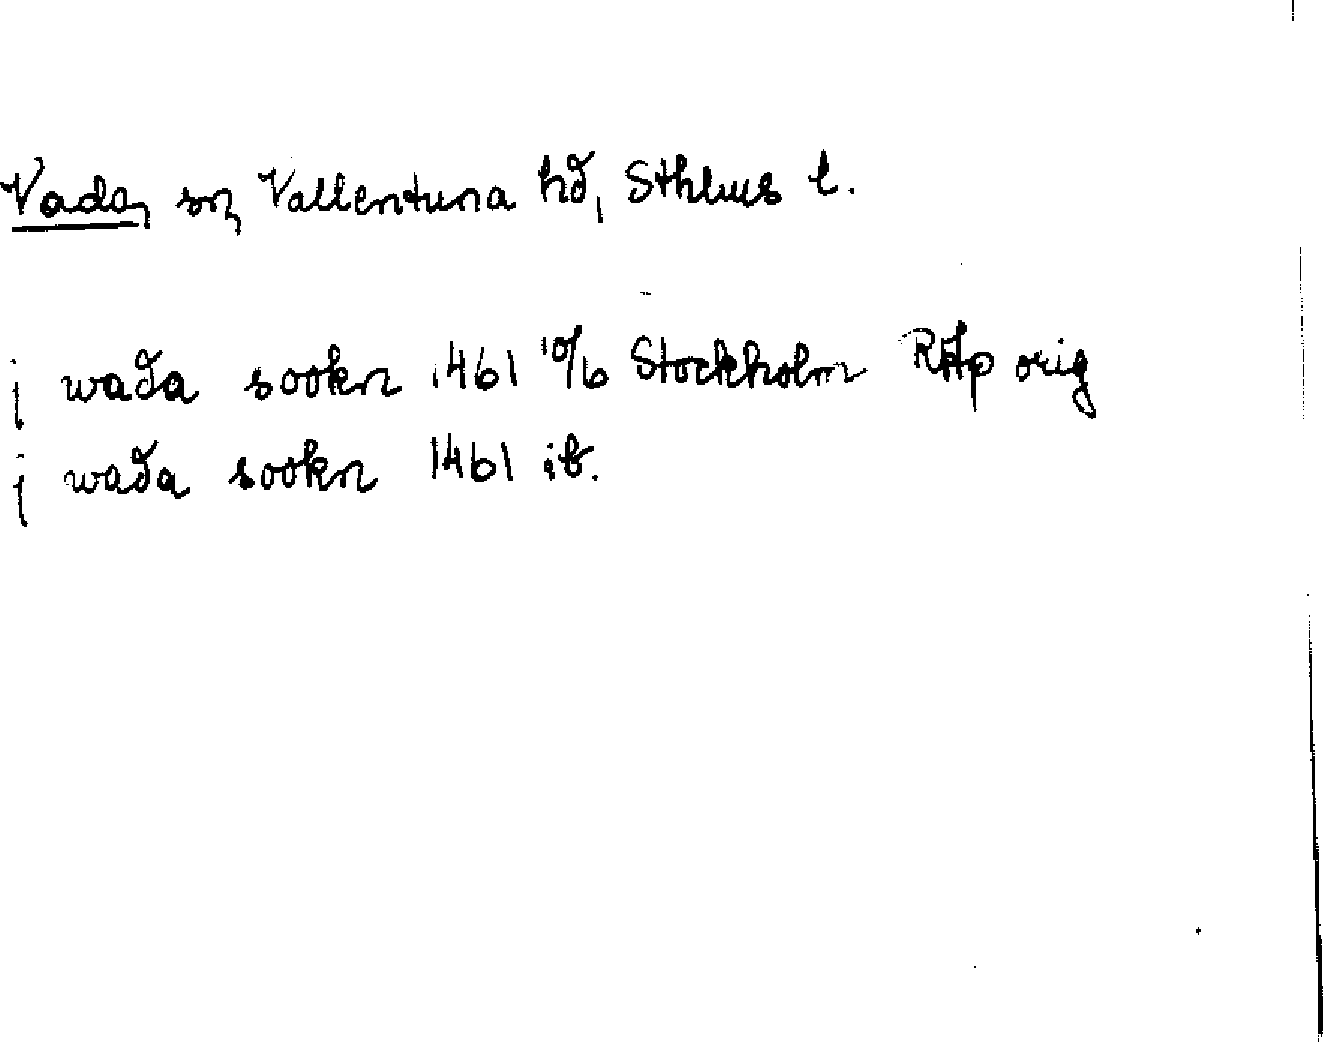 Vada, sn, Vallentuna hd, Sthlms l.
j wada sookn 1461 10/6 Stockholm RAp orig
j wada sookn 1461 ib.